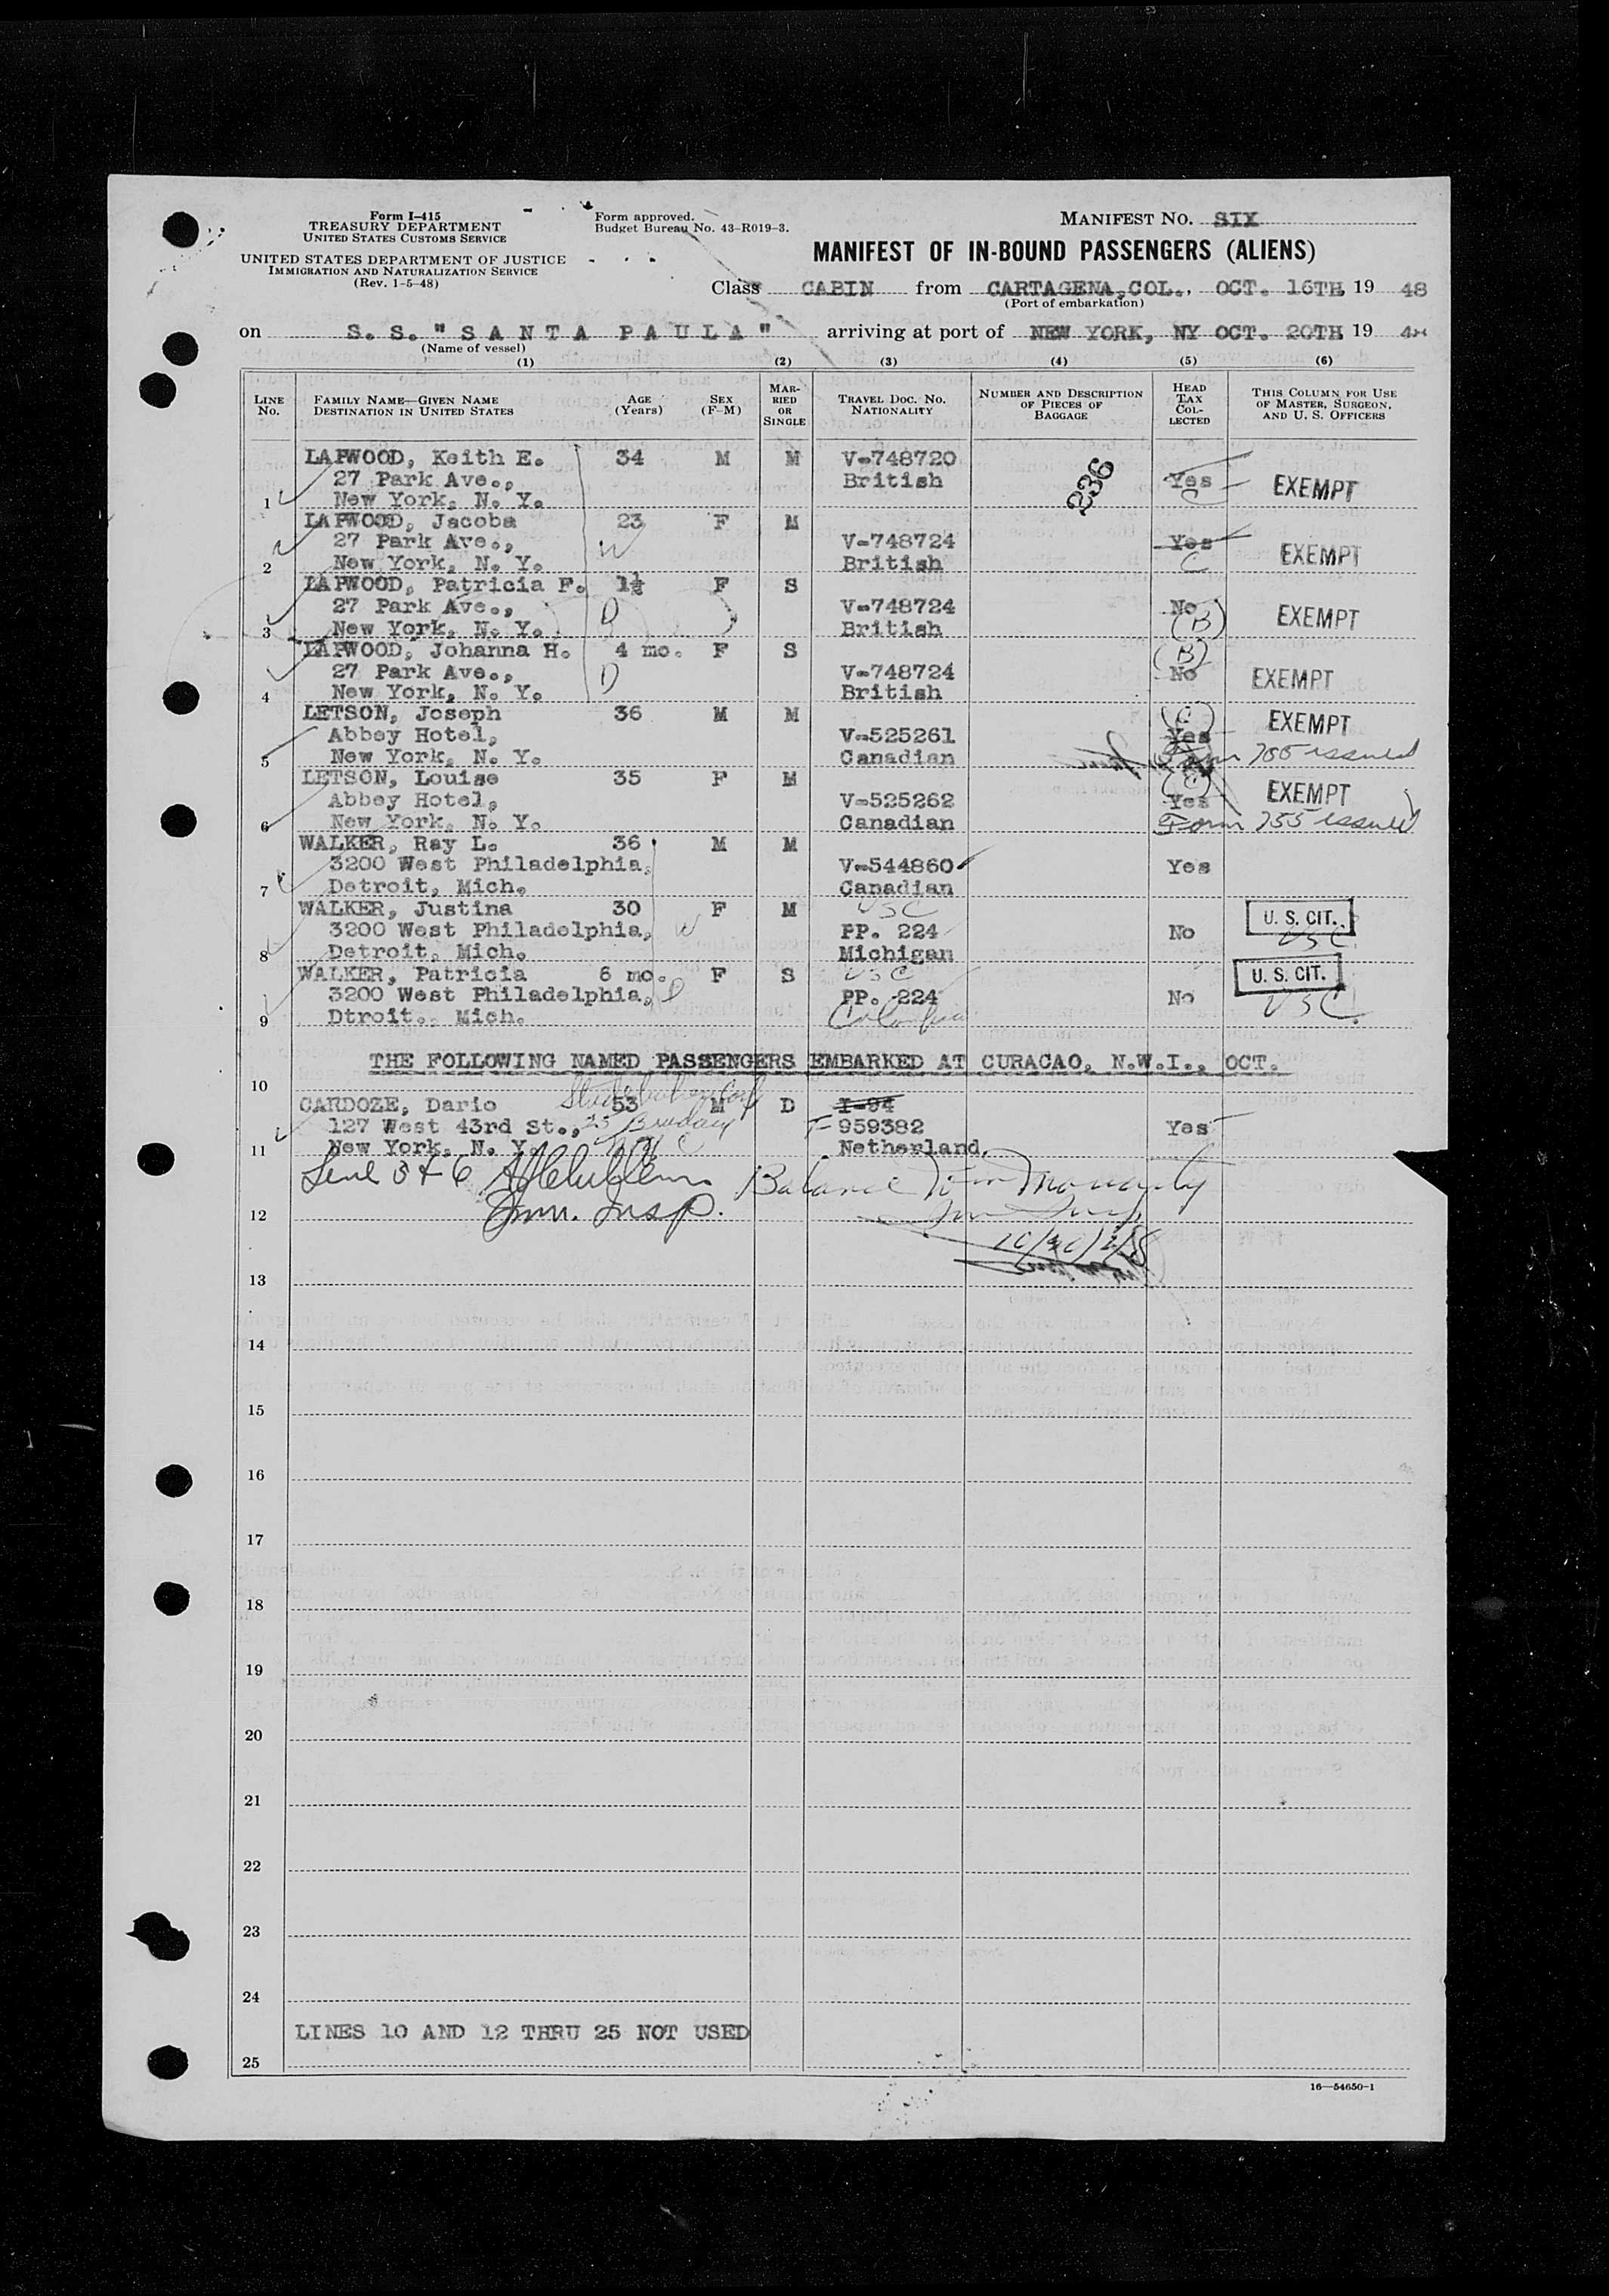 Form I-415
TREASURY DEPARTMENT
UNITED STATES CUSTOMS SERVICE
UNITED STATES DEPARTMENT OF JUSTICE
IMMIGRATION AND NATURALIZATION SERVICE
(Rev. 1-5-48)
Form approved.
Budget Bureau No. 43-R019-3.
MANIFEST NO. SIX
MANIFEST OF IN-BOUND PASSENGERS (ALIENS)
Class CABIN from CARTAGENA,COL., OCT. 16TH 19 48
(Port of embarkation)
on S. S. "S A N T A P A U L A" arriving at port of NEW YORK, NY OCT. 20TH 19 48
(Name of vessel)
(1) (2) (3) (4) (5) (6)
LINE No. FAMILY NAME—GIVEN NAME DESTINATION IN UNITED STATES AGE (Years) SEX (F-M) MARRIED OR SINGLE TRAVEL DOC. NO. NATIONALITY NUMBER AND DESCRIPTION OF PIECES OF BAGGAGE HEAD TAX COLLECTED THIS COLUMN FOR USE OF MASTER, SURGEON, AND U. S. OFFICERS
LAPWOOD, Keith E. 34 M M V-748720
27 Park Ave., British 236 Yes EXEMPT
1 New York, N. Y. C
LAPWOOD, Jacoba 23 F M
27 Park Ave., W V-748724 Yes EXEMPT
2 New York, N. Y. British C
LAPWOOD, Patricia F. 1½ F S
27 Park Ave., D V-748724 No EXEMPT
3 New York, N. Y. British (B)
LAPWOOD, Johanna H. 4 mo. F S (B)
27 Park Ave., D V-748724 No EXEMPT
4 New York, N. Y. British
LETSON, Joseph 36 M M (C) EXEMPT
Abbey Hotel, V-525261 Yes
5 New York, N. Y. Canadian Form 755 issued
LETSON, Louise 35 F M (C) EXEMPT
Abbey Hotel, V-525262 Yes
6 New York, N. Y. Canadian Form 755 issued
WALKER, Ray L. 36 M M
3200 West Philadelphia, V-544860 Yes
7 Detroit, Mich. Canadian
WALKER, Justina 30 F M USC U. S. CIT.
3200 West Philadelphia, W PP. 224 No USC
8 Detroit, Mich. Michigan
WALKER, Patricia 6 mo. F S USC U. S. CIT.
3200 West Philadelphia, D PP. 224 No USC
9 Dtroit. Mich. Colombia
THE FOLLOWING NAMED PASSENGERS EMBARKED AT CURACAO, N.W.I., OCT.
10
CARDOZE, Dario 53 M D I-94
127 West 43rd St., 959382 Yes
11 New York, N. Y. Netherland.
Line 5 & 6 Balance
Imm. Insp.
12
13
14
15
16
17
18
19
20
21
22
23
24
LINES 10 AND 12 THRU 25 NOT USED
25
16—54650-1